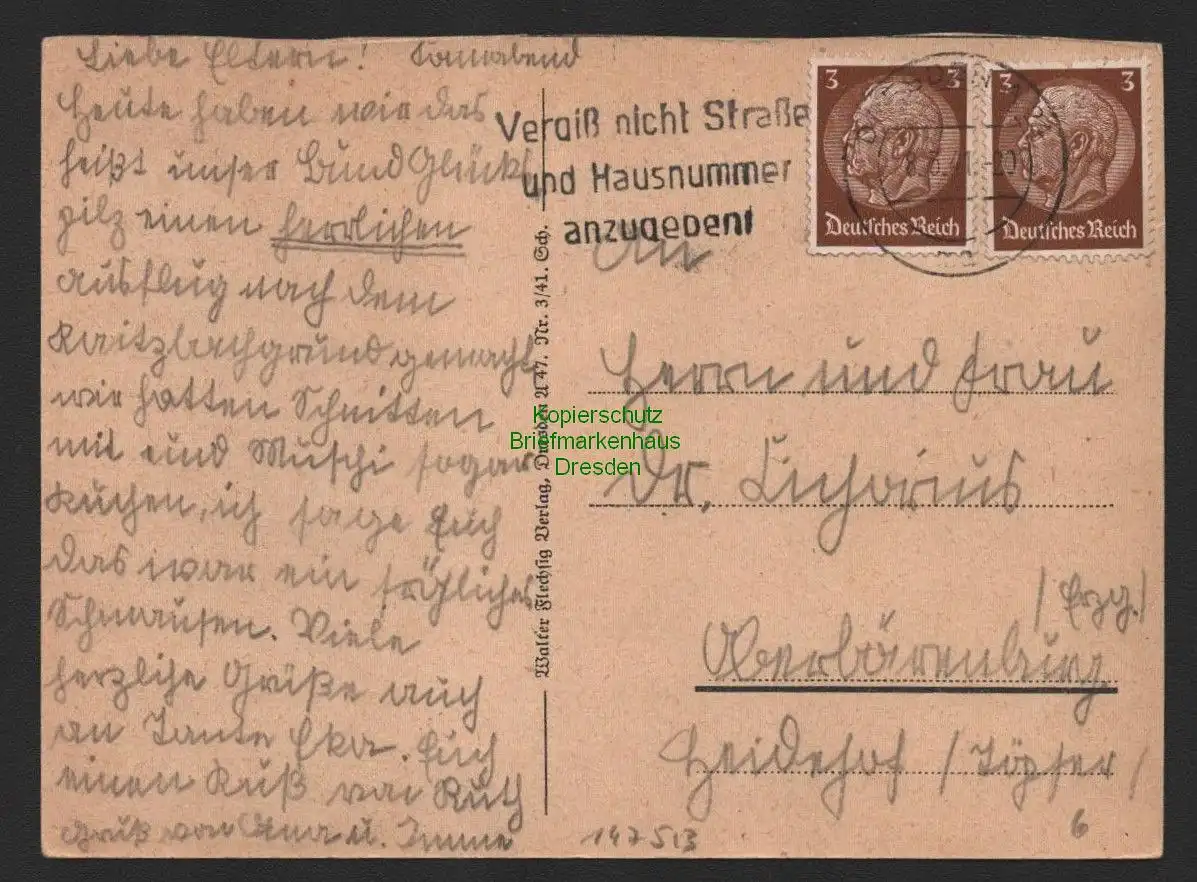 Liebe Eltern! Sonnabend
Heute haben wir das
heißt unser Bund Glücks
pilz einen herrlichen
Ausflug nach dem
Kaitzbachgrund gemacht,
wir hatten Schnitten
mit und Muschi sogar
Kuchen, ich sage Euch
das war ein fröhliches
Schmausen. Viele
herzliche Grüße auch
an Tante Eka. Euch
einen Kuß von Ruth
Gruß von u. Imme
Walter Flechsig Verlag, Dresden A 47. Nr. 3/41. Sch.
Vergiß nicht Straße
und Hausnummer
anzugeben!
3 3
Deutsches Reich
3 3
Deutsches Reich
An
Herrn und Frau
Dr. Lichorius
/Erzg./
Oberbärenburg
Heidehof /Töpfer/
147513
6
Kopierschutz
Briefmarkenhaus
Dresden